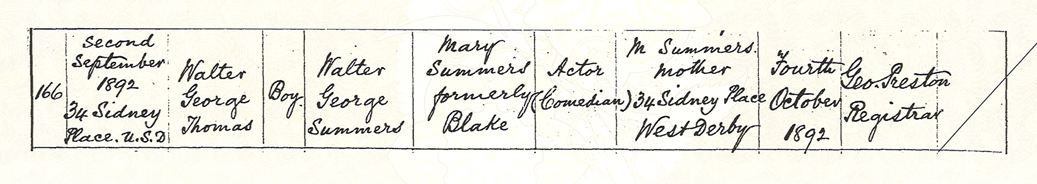 166
Second
September
1892
34 Sidney
Place. U.S.D
Walter
George
Thomas
Boy
Walter
George
Summers
Mary
Summers
formerly
Blake
Actor
(Comedian)
M Summers.
Mother
34 Sidney Place
West Derby
Fourth
October
1892
Geo. Preston
Registrar